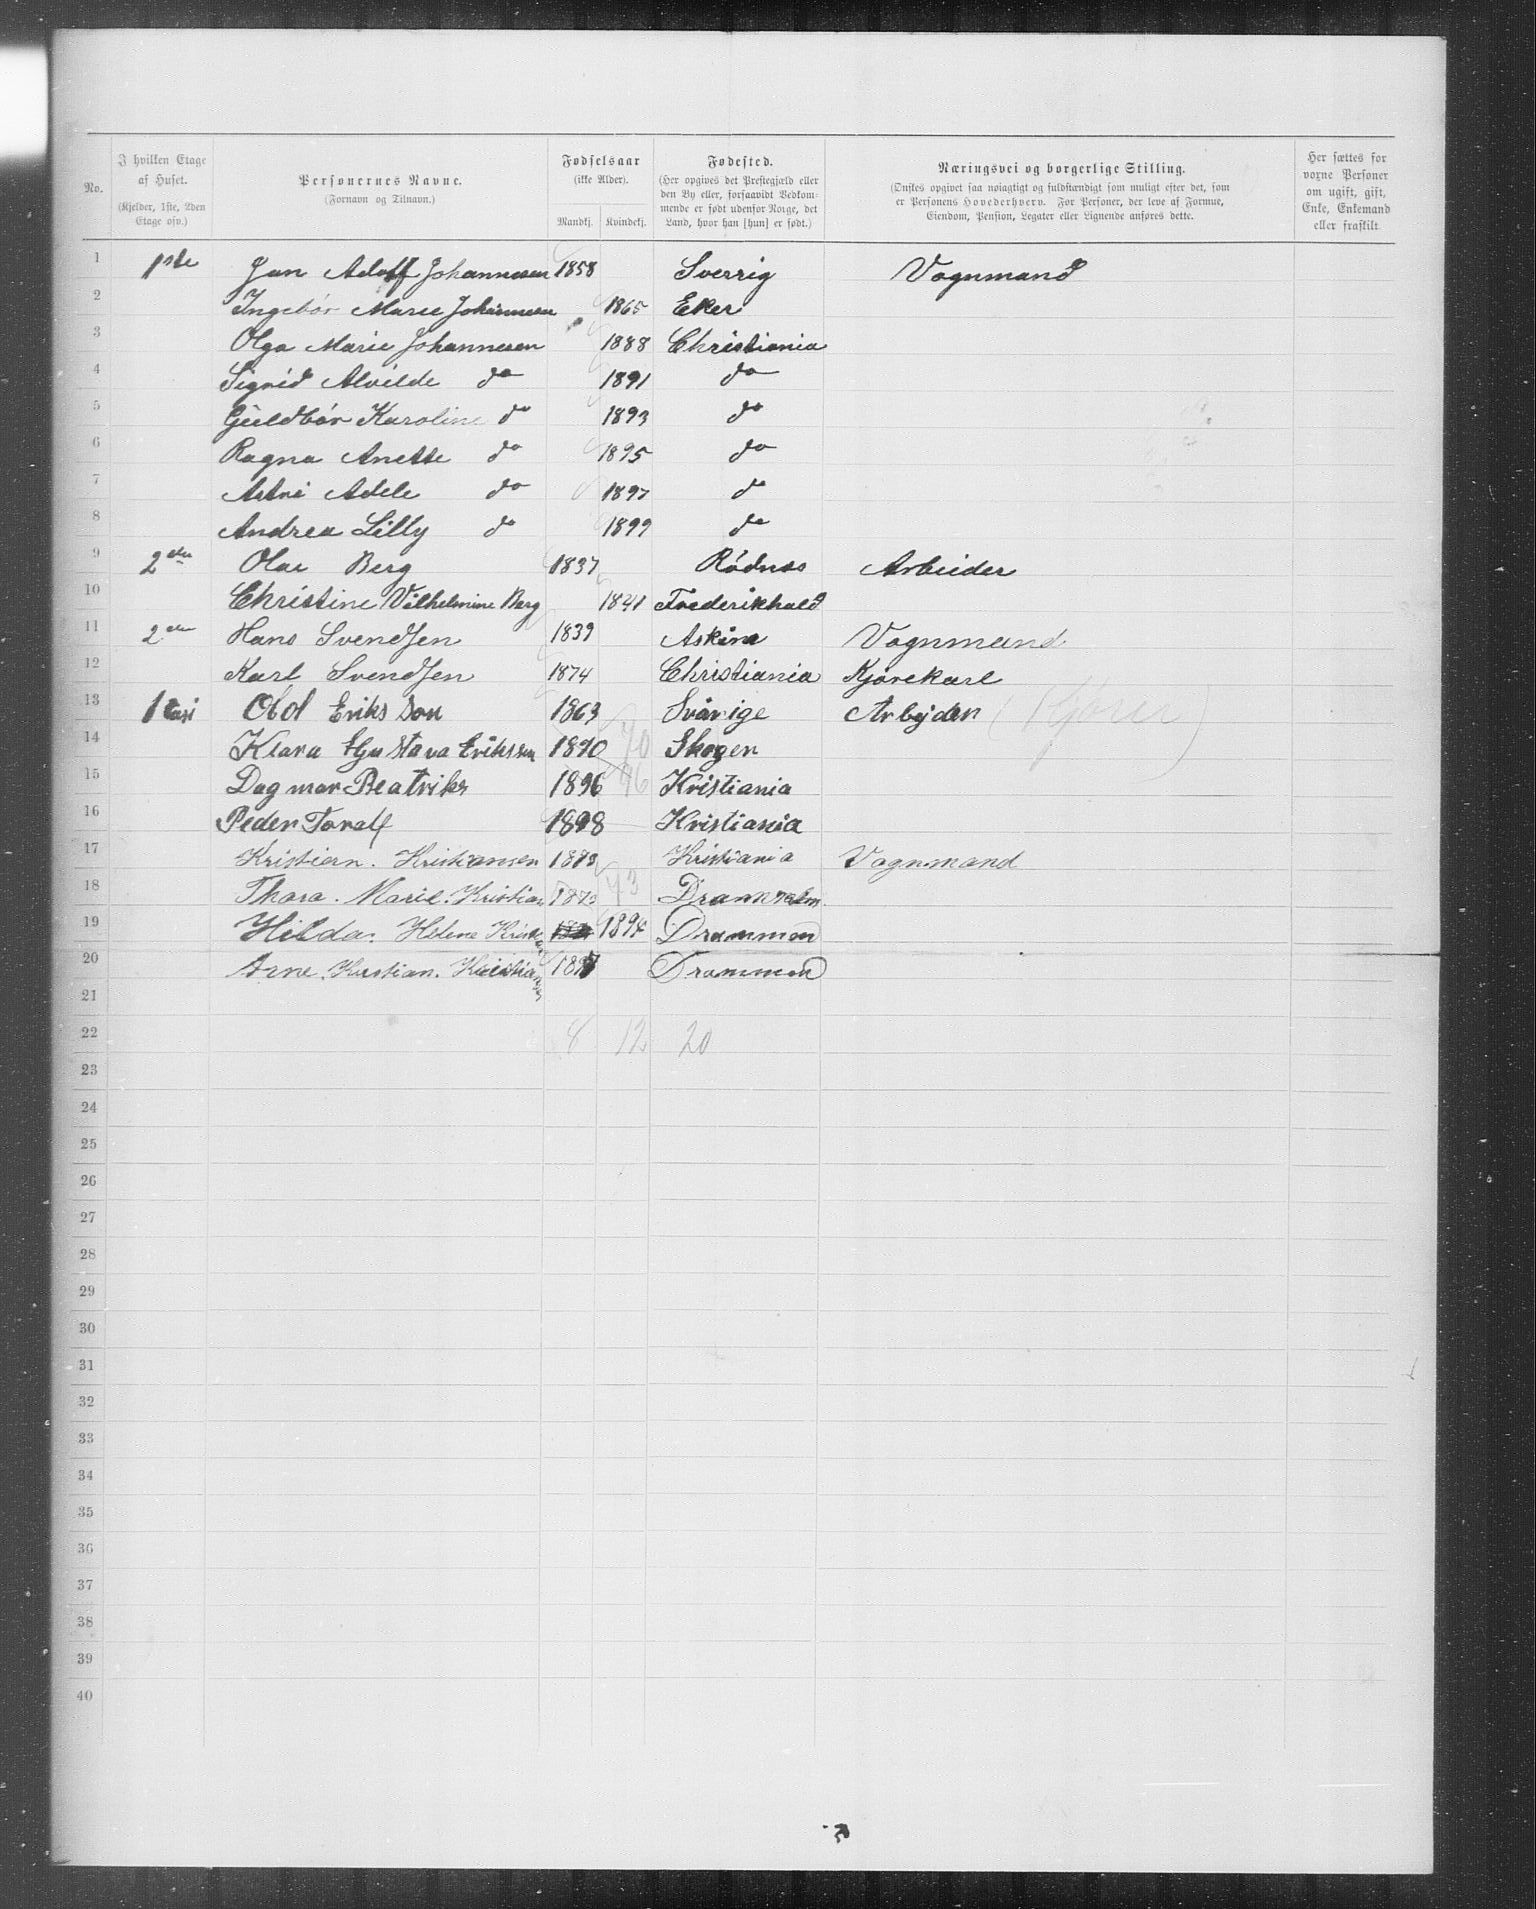 No.
I hvilken Etage af Huset. (Kjelder, 1ste, 2den Etage osv.)
Personernes Navne. (Fornavn og Tilnavn.)
Fødselsaar (ikke Alder). Mandkj. Kvindekj.
Fødested. (Her opgives det Prestegjæld eller den By eller, forsaavidt Vedkommende er født udenfor Norge, det Land, hvor han [hun] er født.)
Næringsvei og borgerlige Stilling. (Ønskes opgivet saa nøiagtigt og fuldstændigt som muligt efter det, som er Personens Hovederhverv. For Personer, der leve af Formue, Eiendom, Pension, Legater eller Lignende anføres dette.)
Her sættes for voxne Personer om ugift, gift, Enke, Enkemand eller fraskilt.
1 1ste Jan Adolf Johannesen 1858 Sverrig Vognmand
2 Ingebór Marie Johannesen 1865 Eker
3 Olga Marie Johannesen 1888 Christiania
4 Sigrid Alvilde do 1891 do
5 Guldbór Karoline do 1893 do
6 Ragna Anette do 1895 do
7 Astri Adele do 1897 do
8 Andrea Lilly do 1899 do
9 2den Olai Berg 1837 Ródnes Arbeider
10 Christine Vilhelmine Berg 1841 Frederikhald
11 2den Hans Svendsen 1839 Askim Vognmand
12 Karl Svendsen 1874 Christiania Kjórekarl
13 1 Erikson 1863 Svärige Arbejder (Kjører)
14 Klara Gustava Eriksson 1870 70 Skogen
15 Dagmar Beatriks 1896 96 Kristiania
16 Peder Toralf 1898 Kristiania
17 Kristian. Kristiansen 1873 Kristiania Vognmand
18 Thora. Marie. Kristian 1873 73
19 Hilda. Helene 1894 Drammen
20 Arne. Kristian. Kristiansen 1897 Drammen
21
22 8 12 20
23
24
25
26
27
28
29
30
31
32
33
34
35
36
37
38
39
40